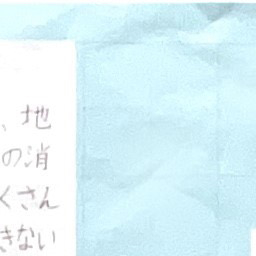 、地
の消
くさん
きない